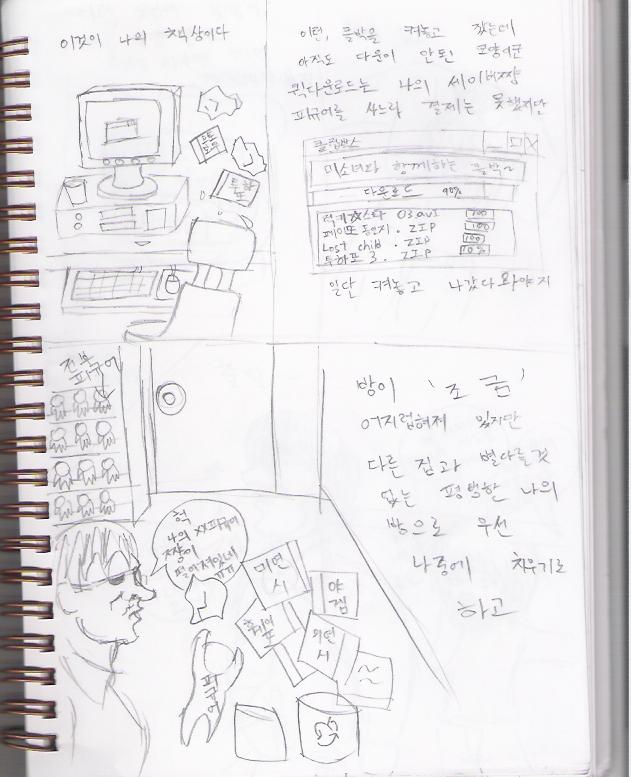 이것이 나의 책상이다
투하
또
이런, 클박을 켜놓고 잤는데
아직도 다운이 안된 모양이군
퀵다운로드는 나의 세이버짱
피규어를 사느라 결제는 못했지만
클럽박스
미소녀와 함께하는 클박~
다운로드 90%
럭키☆스타 03.avI 100
페이또 동인지.ZIP 100
Lost chib.ZIP 100
투하또 3.ZIP 10%
일단 켜놓고 나갔다 와야지
전부
피규어
방이 '조금'
어지럽혀져 있지만
다른 집과 별다를것
없는 평범한 나의
방으로 우선
나중에 치우기로
하고
헉
나의 XX피규어
짱이
떨어져있네
ㄲㄲ
미연
시
야
겜
미연
시